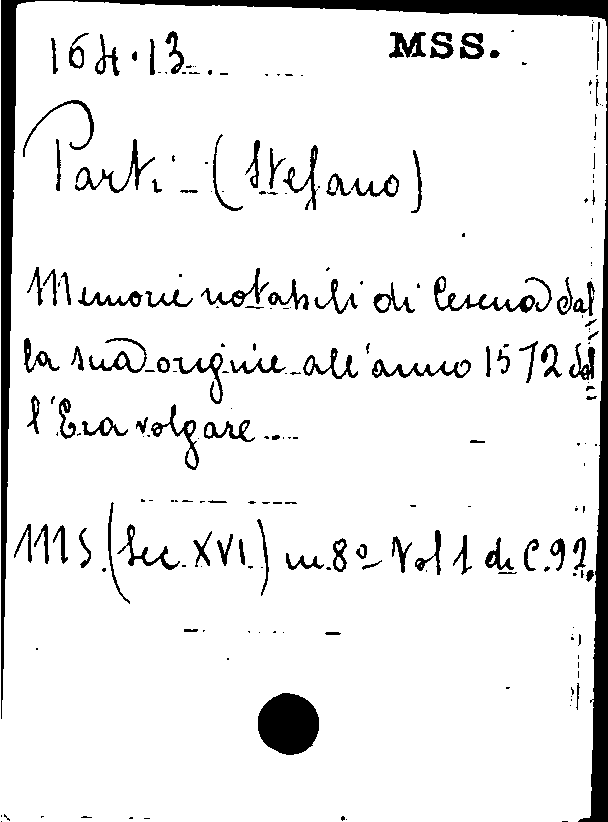 164.13 MSS.
Parti - (Stefano)
Memorie notabili di Cesena dal
la sua origine all'anno 1572 del
l'Era volgare
MS. (Sec. XVI.) in 8º Vol 1 di C. 92.